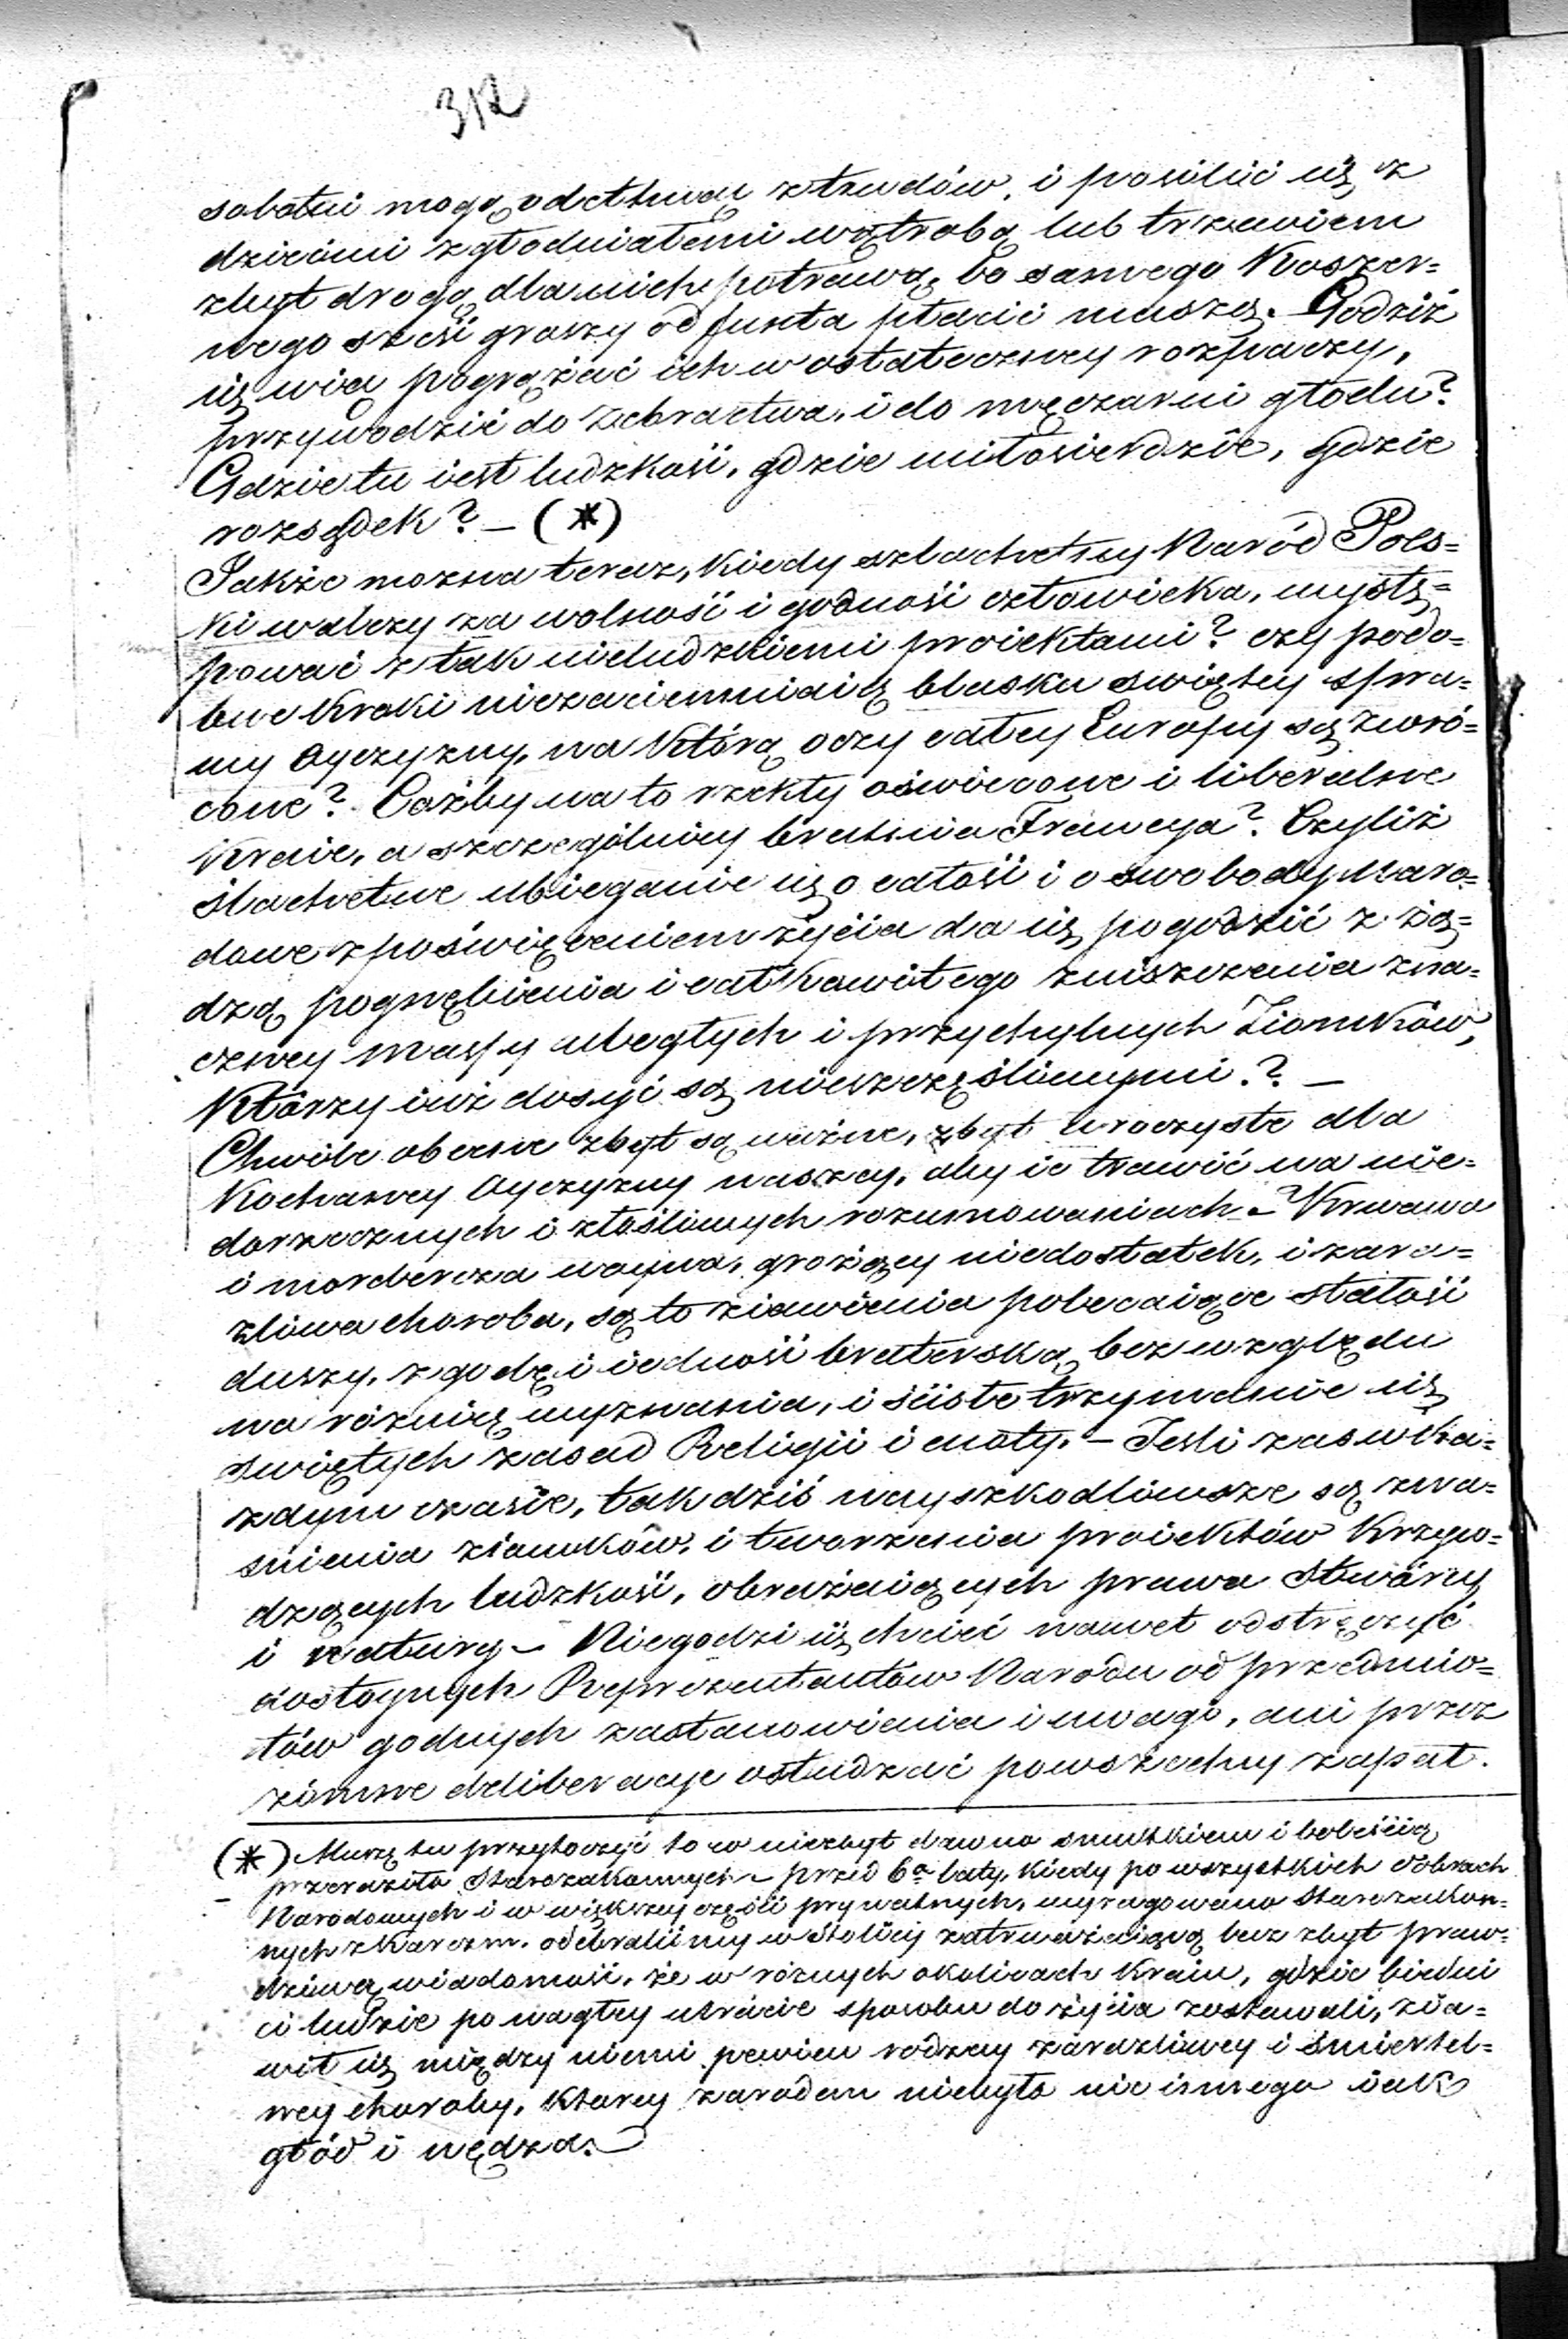 312
sobotni mogą odetchnąć z trudów, i posilić się z
dziećmi zgłodniałemi wątrobą lub trzewiem
zbyt drogą dla nich potrawą, bo samego Koszer=
nego sześć groszy od funta płacić muszą. Godziż
się więc pogrążać ich w ostateczney rozpaczy,
przywodzić do żebractwa, i do męczarni głodu?
Gdzie tu iest ludzkość, gdzie miłosierdzie, gdzie
rozsądek? — (*)
Jakże można teraz, kiedy szlachetny Naród Pols=
ki walczy za wolność i godność człowieka, wystę=
pować z tak nieludzkiemi proiektami? czy podo=
bne kroki niezaciemniaią blasku swiętey spra=
wy Oyczyzny, na którą oczy całey Europy są zwró=
cone? Cożby na to rzekły oświecone i liberalne
Kraie, a szczególniey bratnia Francya? Czyliż
ślachetne ubieganie się o całość i o swobody Naro=
dowe z poświęceniem życia da się pogodzić z żą=
dzą pognębienia i całkowitego zniszczenia zna=
czney massy uległych i przychylnych Ziomków,
Którzy iuż dosyć są nieszczęśliwymi? —
Chwile obecne zbyt są ważne, zbyt uroczyste dla
Kochaney Oyczyzny naszey, aby ie trawić na nie=
dorzecznych i złośliwych rozumowaniach. — Krwawa
i mordercza woyna, grożący niedostatek, i zara=
źliwa choroba, są to ziawienia polecaiące stałość
duszy, zgodę i iedność braterską bez względu
na różnicę wyznania, i ściste trzymanie się
swiętych zasad Religii i cnoty. — Jesli zas w Ka=
żdym czasie, tak dziś nayszkodliwsze są zwa=
śnienia ziomków, i tworzenia proiektów Krzyw=
dzących ludzkość, obrażaiących prawa Stwórcy
i natury — Niegodzi się chcieć nawet odstręczyć
dostoynych Reprezentantów Narodu od przedmio=
tów godnych zastanowienia i uwagi, ani przez
zimne deliberacye ostudzać powszechny zapał.
(*) Muszę tu przytoczyć to co niezbyt dawno smutkiem i boleścią
przeraziło Starozakonnych — przed 6ą laty, kiedy po wszystkich dobrach
Narodowych i w większey części prywatnych, wyrugowano Starozakon=
nych z Karczm, odebraliśmy w Stolicy zatrważaiącą lecz zbyt praw=
dziwą wiadomość, że w różnych okolicach Kraiu, gdzie biedni
ci ludzie po nagłey utracie sposobu do życia zostawali, zia=
wił się między niemi pewien rodzay zaraźliwey i śmiertel=
ney choroby, Ktorey zarodem niebyło nic innego iak
głód i nędza.